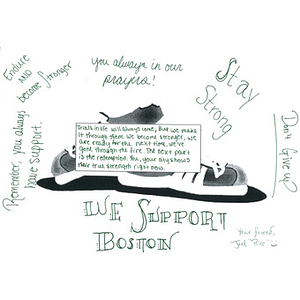 Endure
AND
become Stronger
you always in our
prayers!
Stay
Strong
Remember, you always
have support.
Trials in life will always come, But we make
it through them. We become stronger, we
are ready for the next time, we've
gone through the fire. The next part
is the redemption. You, your city shows
their true strength right now.
Don't give up
WE SUPPORT
BOSTON
Your friend,
Jack